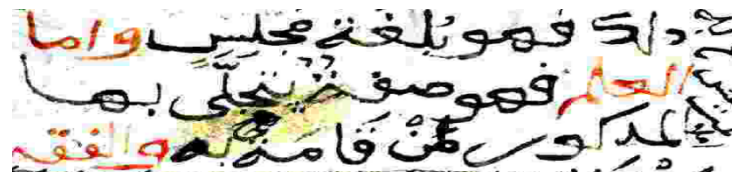 ذلك فهو بلغة مجلس واما
العلم فهو صفة يتجلّى بها
المذكور لمن قامت به والفقه